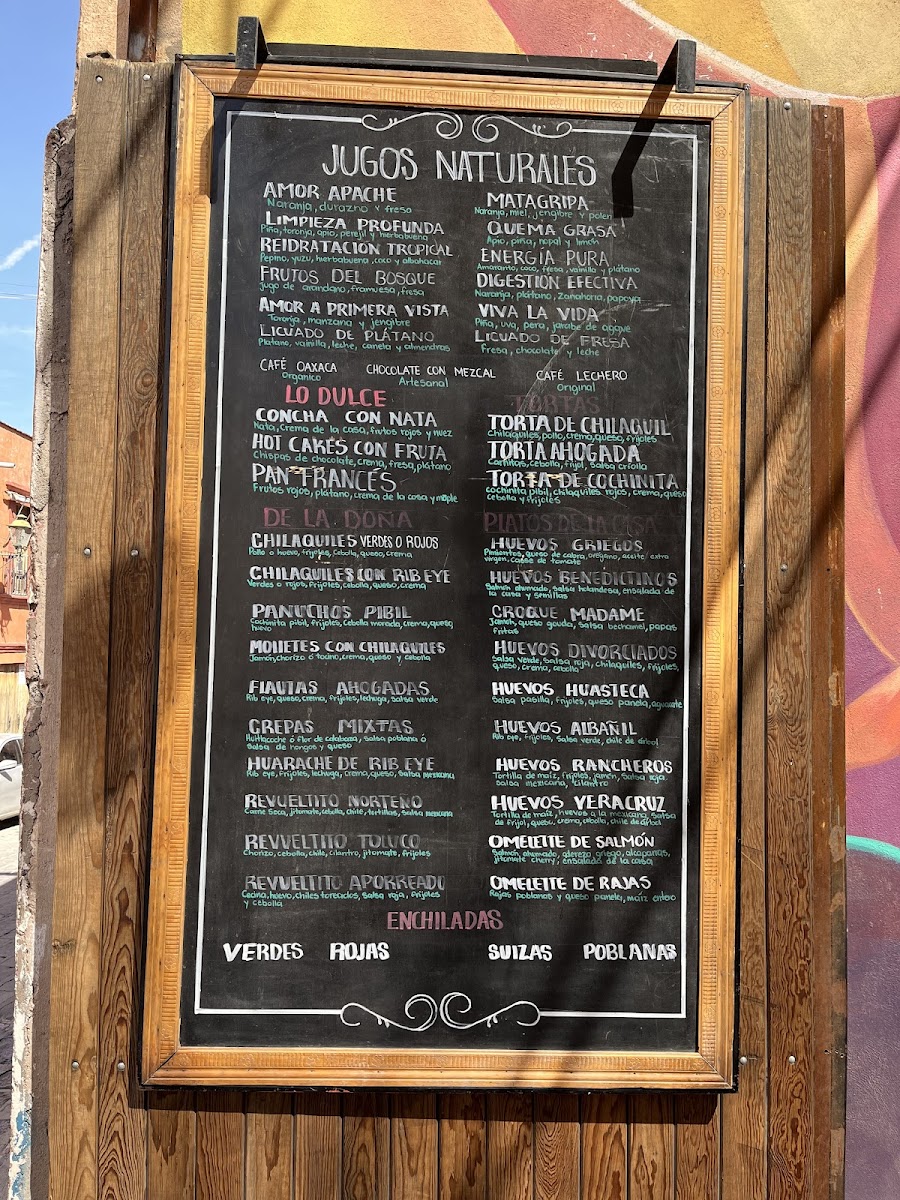 JUGOS NATURALES
AMOR APACHE
Naranja, durazno y fresa
LIMPIEZA PROFUNDA
Piña, toronja, apio, perejil y hierbabuena
REIDRATACIÓN TROPICAL
Pepino, yuzu, hierbabuena, coco y albahacar
FRUTOS DEL BOSQUE
Jugo de arandano, framuesa, fresa
AMOR A PRIMERA VISTA
Toronja, manzana y jengibre
LICUADO DE PLÁTANO
Platano, vainilla, leche, canela y almendras
MATAGRIPA
Naranja, miel, jengibre y polen
QUEMA GRASA
Apio, piña, nopal y limón
ENERGÍA PURA
Amaranto, coco, fresa, vainilla y plátano
DIGESTIÓN EFECTIVA
Naranja, plátano, Zanahoria, papaya
VIVA LA VIDA
Piña, uva, pera, jarabe de agave
LICUADO DE FRESA
Fresa, chocolate y leche
CAFÉ OAXACA
organico
CHOCOLATE CON MEZCAL
Artesanal
CAFÉ LECHERO
Original
LO DULCE
CONCHA CON NATA
Nata, Crema de la casa, frutos rojos y nuez
HOT CAKES CON FRUTA
Chispas de chocolate, crema, fresa, plátano
PAN FRANCÉS
Frutos rojos, plátano, crema de la casa y maple
TORTAS
TORTA DE CHILAQUIL
Chilaquiles, pollo, crema, queso, frijoles
TORTA AHOGADA
Carnitas, cebolla, frijol, salsa criolla
TORTA DE COCHINITA
cochinita pibil, chilaquiles rojos, crema, queso
cebolla y frijoles
DE LA DOÑA
CHILAQUILES VERDES O ROJOS
Pollo o huevo, frijoles, cebolla, queso, crema
CHILAQUILES CON RIB EYE
Verdes o rojos, frijoles, cebolla, queso, crema
PANUCHOS PIBIL
Cochinita pibil, frijoles, cebolla morada, crema, queso,
huevo
MOLLETES CON CHILAQUILES
Jamón, chorizo ó tocino, crema, queso y cebolla
FLAUTAS AHOGADAS
Rib eye, queso, crema, frijoles, lechuga, salsa verde
CREPAS MIXTAS
Huitlacoche ó flor de calabaza, salsa poblana ó
salsa de hongos y queso
HUARACHE DE RIB EYE
Rib eye, frijoles, lechuga, crema, queso, salsa mexicana
REVUELTITO NORTEÑO
Carne Seca, jitomate, cebolla, chile, tortillas, salsa mexicana
REVUELTITO TOLUCO
Chorizo, cebolla, chile, cilantro, jitomate, frijoles
REVUELTITO APORREADO
Cecina, huevo, chiles toreados, salsa roja, frijoles
y cebolla
PLATOS DE LA CASA
HUEVOS GRIEGOS
Pimientos, queso de cabra, oregano, aceite extra
virgen, casse de tomate
HUEVOS BENEDICTINOS
Salmón ahumado, salsa holandesa, ensalada de
la casa y semillas
CROQUE MADAME
Jamón, queso gouda, salsa bechamel, papas
fritas
HUEVOS DIVORCIADOS
Salsa verde, salsa roja, chilaquiles, frijoles,
queso, crema, cebolla
HUEVOS HUASTECA
Salsa pasilla, frijoles, queso panela, aguacate
HUEVOS ALBAÑIL
Rib eye, frijoles, salsa verde, chile de árbol
HUEVOS RANCHEROS
Tortilla de maíz, frijoles, jamón, salsa roja
salsa mexicana, cilantro
HUEVOS VERACRUZ
Tortilla de maíz, huevos a la mexicana, salsa
de frijol, queso, crema, cebolla, chile de árbol
OMELETTE DE SALMÓN
Salmón, ahumado, aderezo griego, alcaparras,
jitomate cherry, ensalada de la casa
OMELETTE DE RAJAS
Rajas poblanas y queso panela, maíz entero
ENCHILADAS
VERDES ROJAS SUIZAS POBLANAS